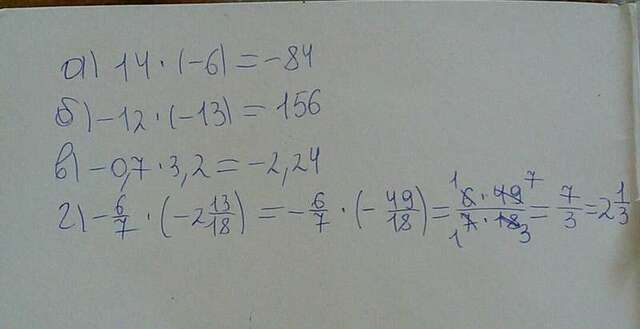 а) 14 · (-6) = -84
б) -12 · (-13) = 156
в) -0,7 · 3,2 = -2,24
г) -6/7 · (-2 13/18) = -6/7 · (-49/18) = 6 · 49/7 · 18 = 7/3 = 2 1/3